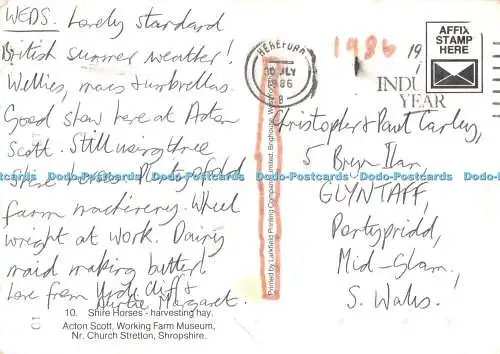 WEDS. Lovely standard
British summer weather!
Wellies, macs & umbrellas.
Good show here at Acton
Scott. Still using three
Shire horses. Plenty of old
farm machinery. Wheel
wright at work. Dairy
maid making butter!
Love from Uncle Cliff &
Auntie Margaret.
10. Shire Horses - harvesting hay.
Acton Scott, Working Farm Museum,
Nr. Church Stretton, Shropshire.
Printed by Larkfield Printing Company Limited, Brighouse, West Yorkshire
HEREFORD
30 JLY
1986
B
1986
19
INDU
YEAR
AFFIX
STAMP
HERE
Christopher & Paul Carley,
5 Bryn Ilan,
GLYNTAFF,
Pontypridd,
Mid-Glam,
S. Wales.
Dodo-Postcards Dodo-Postcards Dodo-Postcards Dodo-Postcards Dodo-Postcards Dodo-Postcards